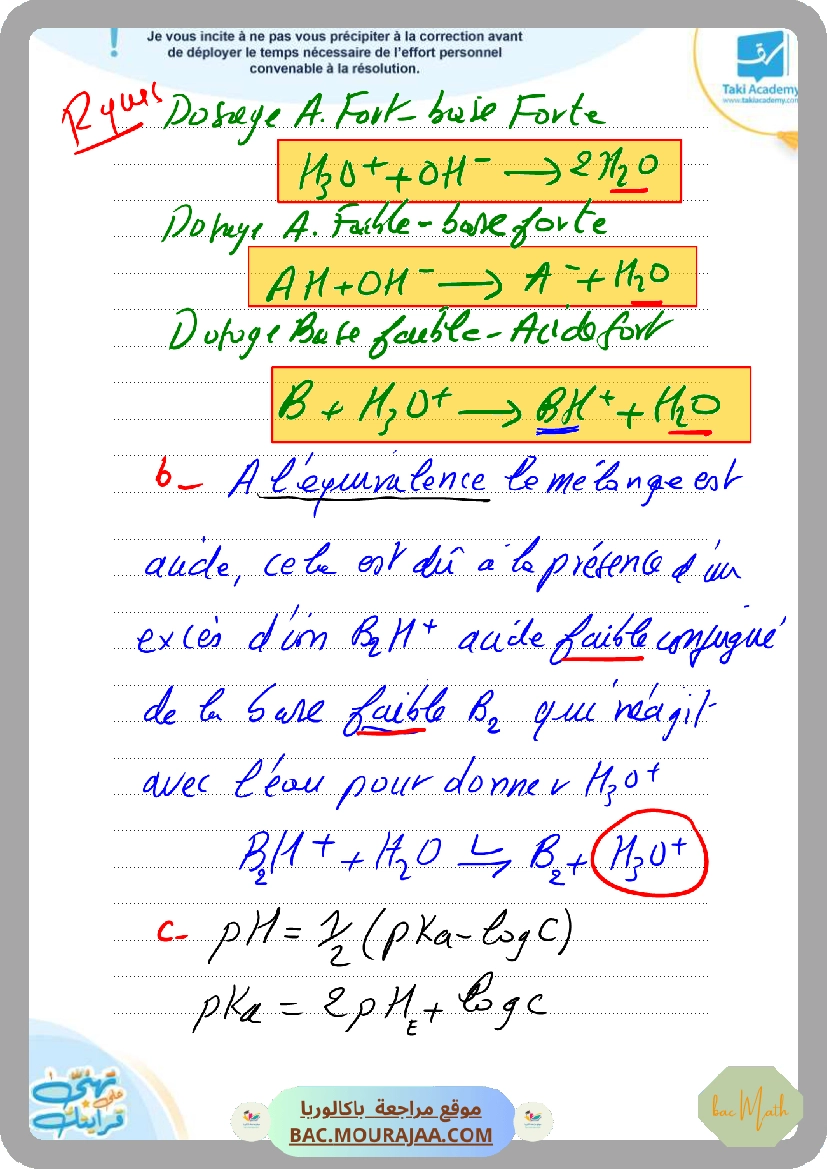 Je vous incite à ne pas vous précipiter à la correction avant
de déployer le temps nécessaire de l'effort personnel
convenable à la résolution.
Taki Academy
www.takiacademy.com
Rques Dosage A. Fort - base Forte
H₃O⁺ + OH⁻ → 2H₂O
Dosage A. Faible - base forte
AH + OH⁻ → A⁻ + H₂O
Dosage Base faible - Acide fort
B + H₃O⁺ → BH⁺ + H₂O
b- A l'équivalence le mélange est
acide, cela est dû à la présence d'un
excès d'ion B₂H⁺ acide faible conjugué
de la base faible B₂ qui réagit
avec l'eau pour donner H₃O⁺
B₂H⁺ + H₂O ⇌ B₂ + H₃O⁺
c- pH = 1/2 (pKa - log C)
pKa = 2pH_E + log C
تهنّى على قرايتك
موقع مراجعة باكالوريا
BAC.MOURAJAA.COM
bac Math